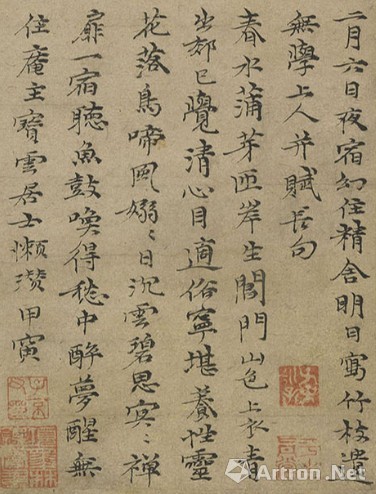 二月六日夜宿幻住精舍明日寫竹枝遺
無學上人并賦長句
春水蒲芽匝岸生閶門山色上衣青
出郊已覺清心目適俗寧堪養性靈
花落鳥啼風嫋〻日沉雲碧思冥〻禪
扉一宿聽魚鼓喚得愁中醉夢醒無
住菴主寶雲居士懶瓚甲寅
Artron.Net